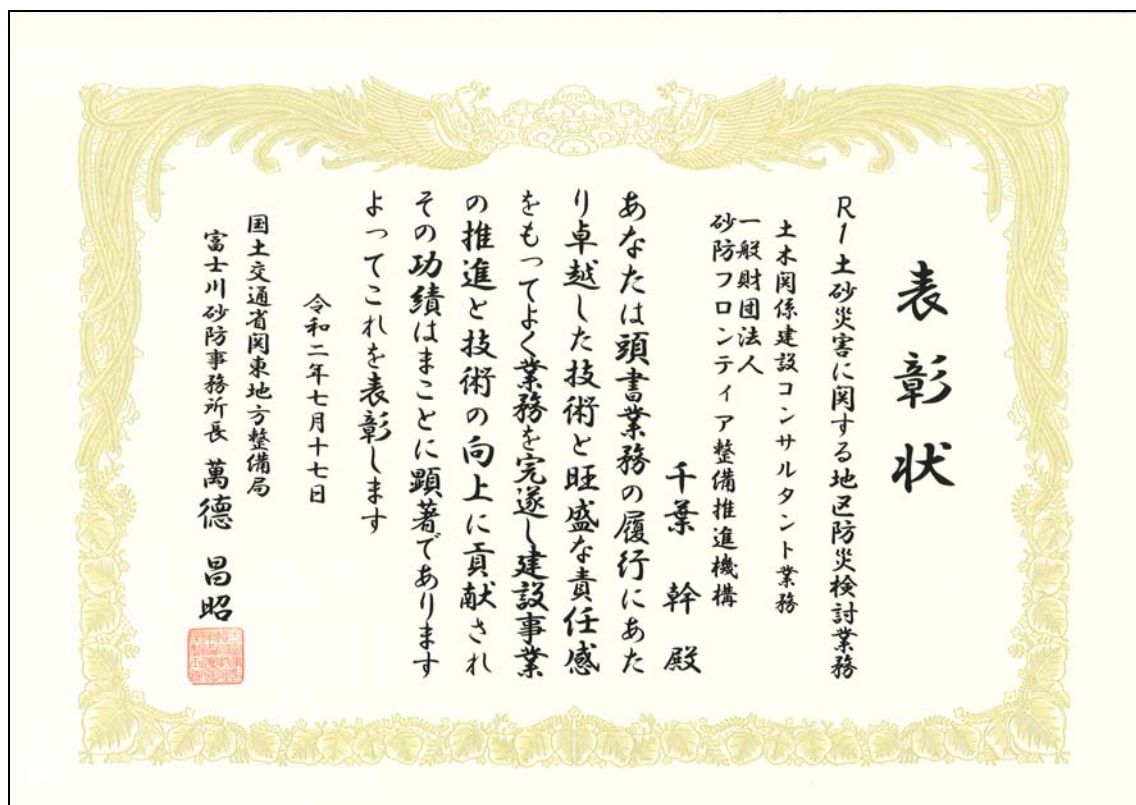 表彰状
R1土砂災害に関する地区防災検討業務
土木関係建設コンサルタント業務
一般財団法人
砂防フロンティア整備推進機構
千葉 幹 殿
あなたは頭書業務の履行にあた
り卓越した技術と旺盛な責任感
をもってよく業務を完遂し建設事業
の推進と技術の向上に貢献され
その功績はまことに顕著であります
よってこれを表彰します
令和二年七月十七日
国土交通省関東地方整備局
富士川砂防事務所長 萬德 昌昭